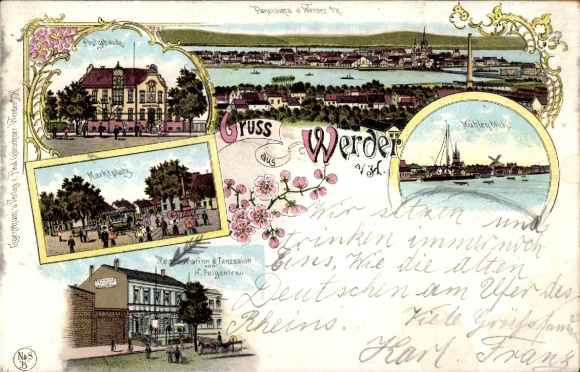 Panorama v. Werder a/H.
Postgebäude
Gruss
aus
Werder
a/H.
Mühlenblick
Marktplatz
Restauration & Tanzsalon
von
H. Felgentreu
Wir sitzen und
trinken immer noch
Eins, Wie die alten
Deutschen am Ufer des
Rheins.
Viele Grüße
Karl Franz
No 8
B